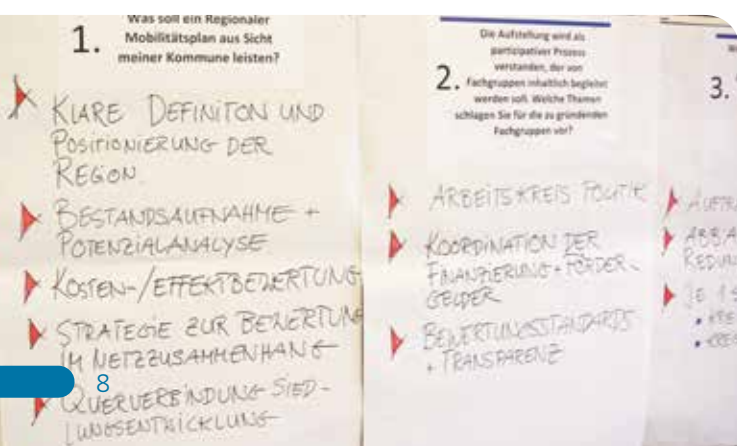 1.
Was soll ein Regionaler
Mobilitätsplan aus Sicht
meiner Kommune leisten?
KLARE DEFINITON UND
POSITIONIERUNG DER
REGION.
BESTANDSAUFNAHME +
POTENZIALANALYSE
KOSTEN-/EFFEKTBEWERTUNG
STRATEGIE ZUR BEWERTUNG
IM NETZZUSAMMENHANG
QUERVERBINDUNG SIED-
LUNGSENTWICKLUNG
8
2.
Die Aufstellung wird als
partizipativer Prozess
verstanden, der von
Fachgruppen inhaltlich begleitet
werden soll. Welche Themen
schlagen Sie für die zu gründenden
Fachgruppen vor?
ARBEITSKREIS POLITIK
KOORDINATION DER
FINANZIERUNG + FÖRDER-
GELDER
BEWERTUNGSSTANDARDS
+ TRANSPARENZ
3.
JE 1